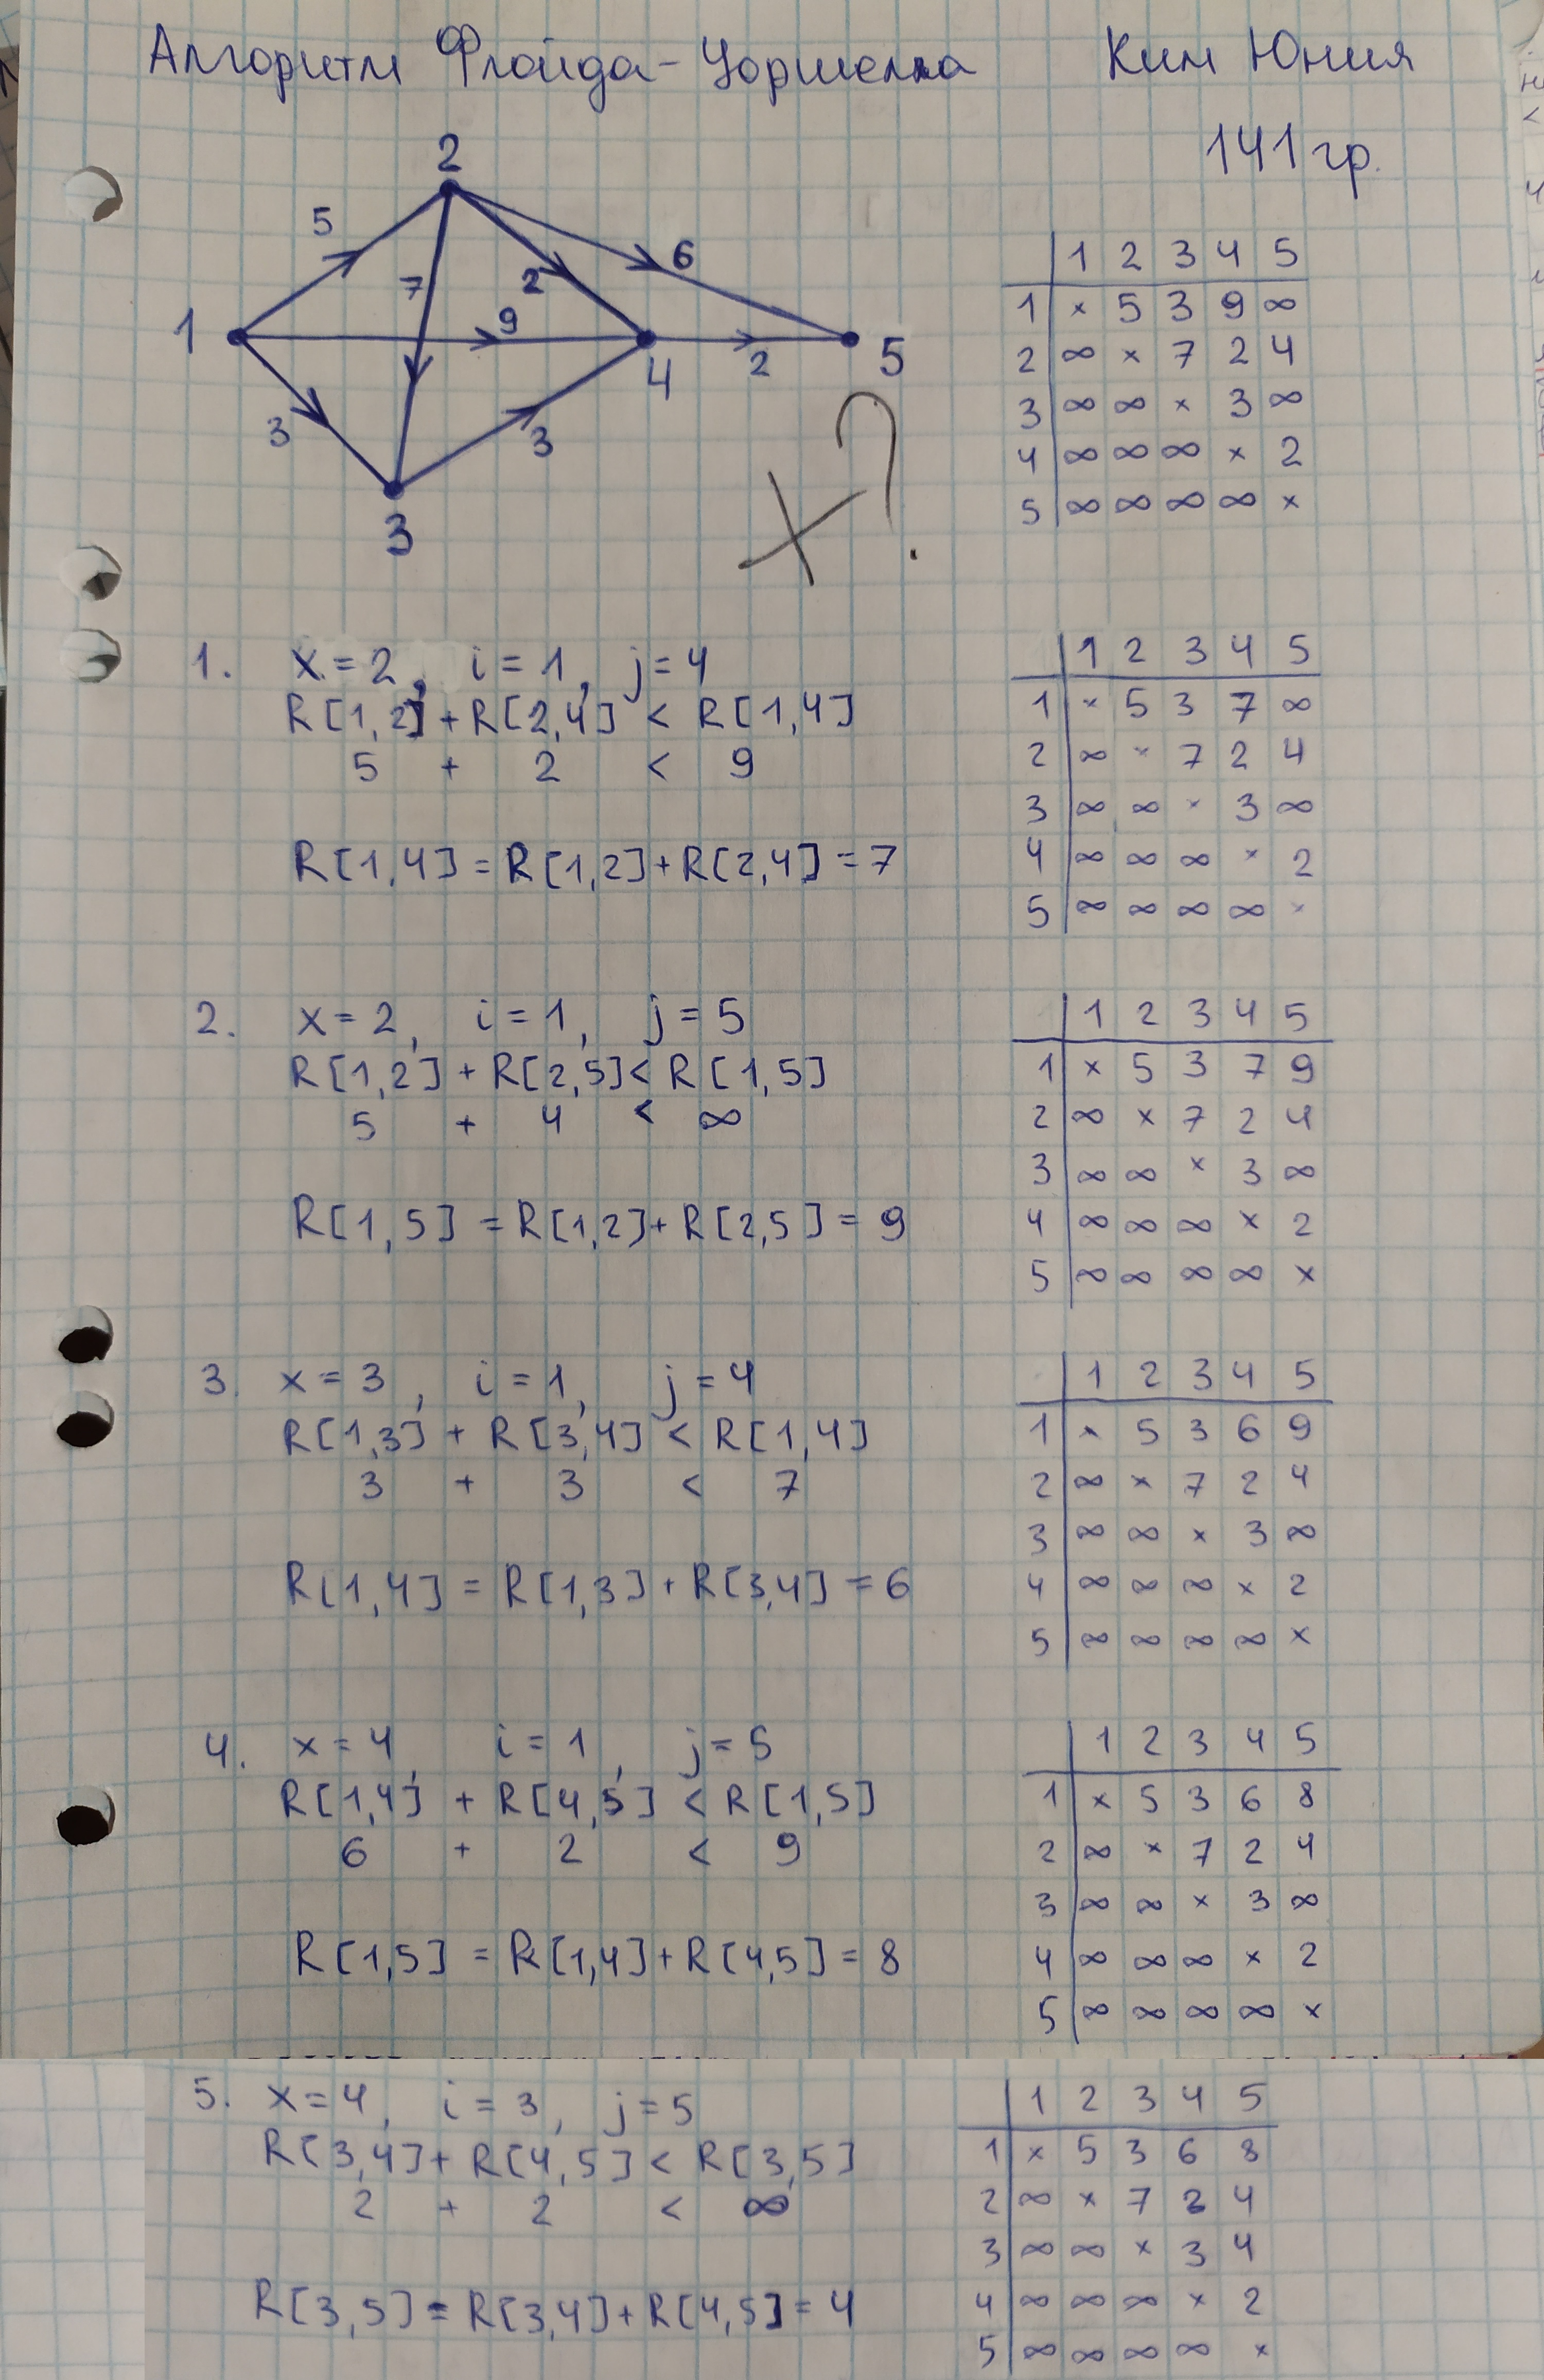 Алгоритм Флойда-Уоршелла
Ким Юния
141 гр.
2
5
6
7
2
9
1
4
2
5
3
3
3
+?.
1 2 3 4 5
1 × 5 3 9 ∞
2 ∞ × 7 2 4
3 ∞ ∞ × 3 ∞
4 ∞ ∞ ∞ × 2
5 ∞ ∞ ∞ ∞ ×
1. x = 2, i = 1, j = 4
R[1,2] + R[2,4] < R[1,4]
5 + 2 < 9
R[1,4] = R[1,2] + R[2,4] = 7
1 2 3 4 5
1 × 5 3 7 ∞
2 ∞ × 7 2 4
3 ∞ ∞ × 3 ∞
4 ∞ ∞ ∞ × 2
5 ∞ ∞ ∞ ∞ ×
2. x = 2, i = 1, j = 5
R[1,2] + R[2,5] < R[1,5]
5 + 4 < ∞
R[1,5] = R[1,2] + R[2,5] = 9
1 2 3 4 5
1 × 5 3 7 9
2 ∞ × 7 2 4
3 ∞ ∞ × 3 ∞
4 ∞ ∞ ∞ × 2
5 ∞ ∞ ∞ ∞ ×
3. x = 3, i = 1, j = 4
R[1,3] + R[3,4] < R[1,4]
3 + 3 < 7
R[1,4] = R[1,3] + R[3,4] = 6
1 2 3 4 5
1 × 5 3 6 9
2 ∞ × 7 2 4
3 ∞ ∞ × 3 ∞
4 ∞ ∞ ∞ × 2
5 ∞ ∞ ∞ ∞ ×
4. x = 4, i = 1, j = 5
R[1,4] + R[4,5] < R[1,5]
6 + 2 < 9
R[1,5] = R[1,4] + R[4,5] = 8
1 2 3 4 5
1 × 5 3 6 8
2 ∞ × 7 2 4
3 ∞ ∞ × 3 ∞
4 ∞ ∞ ∞ × 2
5 ∞ ∞ ∞ ∞ ×
5. x = 4, i = 3, j = 5
R[3,4] + R[4,5] < R[3,5]
2 + 2 < ∞
R[3,5] = R[3,4] + R[4,5] = 4
1 2 3 4 5
1 × 5 3 6 8
2 ∞ × 7 2 4
3 ∞ ∞ × 3 4
4 ∞ ∞ ∞ × 2
5 ∞ ∞ ∞ ∞ ×